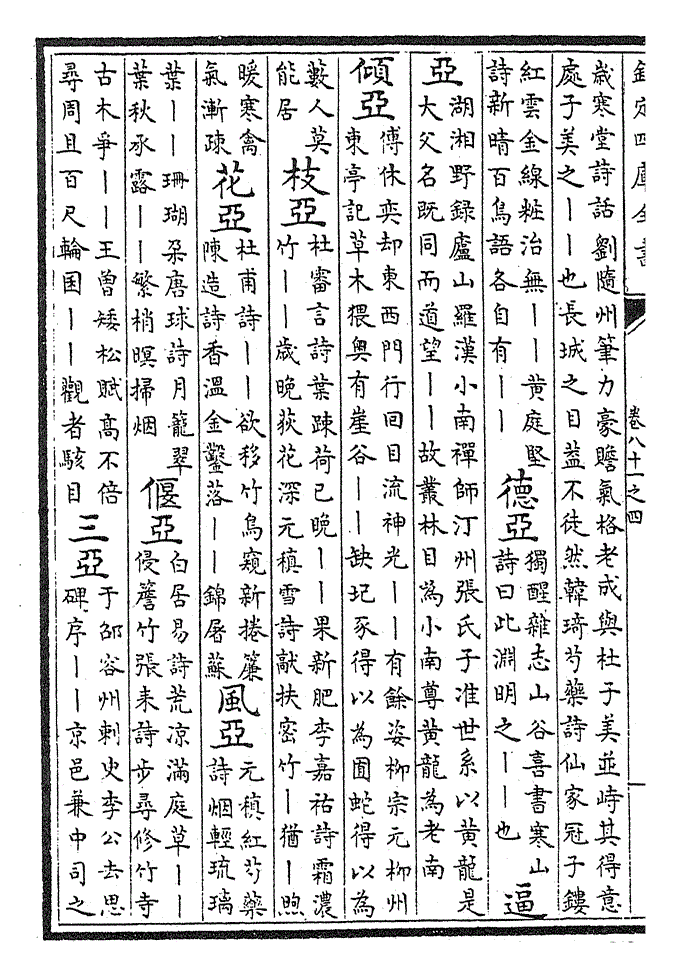 欽定四庫全書
卷八十一之四
歲寒堂詩話劉隨州筆力豪贍氣格老成與杜子美並峙其得意
處子美之丨丨也長城之目蓋不徒然韓琦芍藥詩仙家冠子鏤
紅雲金線粧治無丨丨黄庭堅
詩新晴百鳥語各自有丨丨
德亞
獨醒雜志山谷喜書寒山
詩曰此淵明之丨丨也
逼
亞
湖湘野錄廬山羅漢小南禪師汀州張氏子准世系以黄龍是
大父名既同而道望丨丨故叢林目為小南尊黄龍為老南
傾亞
傅休奕却東西門行回目流神光丨丨有餘姿柳宗元柳州
東亭記草木猥奥有崖谷丨丨缺圮豕得以為囿蛇得以為
藪人莫
能居
枝亞
杜審言詩葉踈荷已晚丨丨果新肥李嘉祐詩霜濃
竹丨丨歲晚荻花深元稹雪詩獻扶密竹丨猶丨煦
暖寒禽
氣漸疎
花亞
杜甫詩丨丨欲移竹鳥窺新捲簾
陳造詩香溫金鑿落丨丨錦屠蘇
風亞
元稹紅芍藥
詩烟輕琉璃
葉丨丨珊瑚朶唐球詩月籠翠
葉秋承露丨丨繁梢暝掃烟
偃亞
白居易詩荒凉滿庭草丨丨
侵簷竹張耒詩步尋修竹寺
古木爭丨丨王曾矮松賦高不倍
尋周且百尺輪囷丨丨觀者駭目
三亞
于邵容州刺史李公去思
碑序丨丨京邑兼中司之